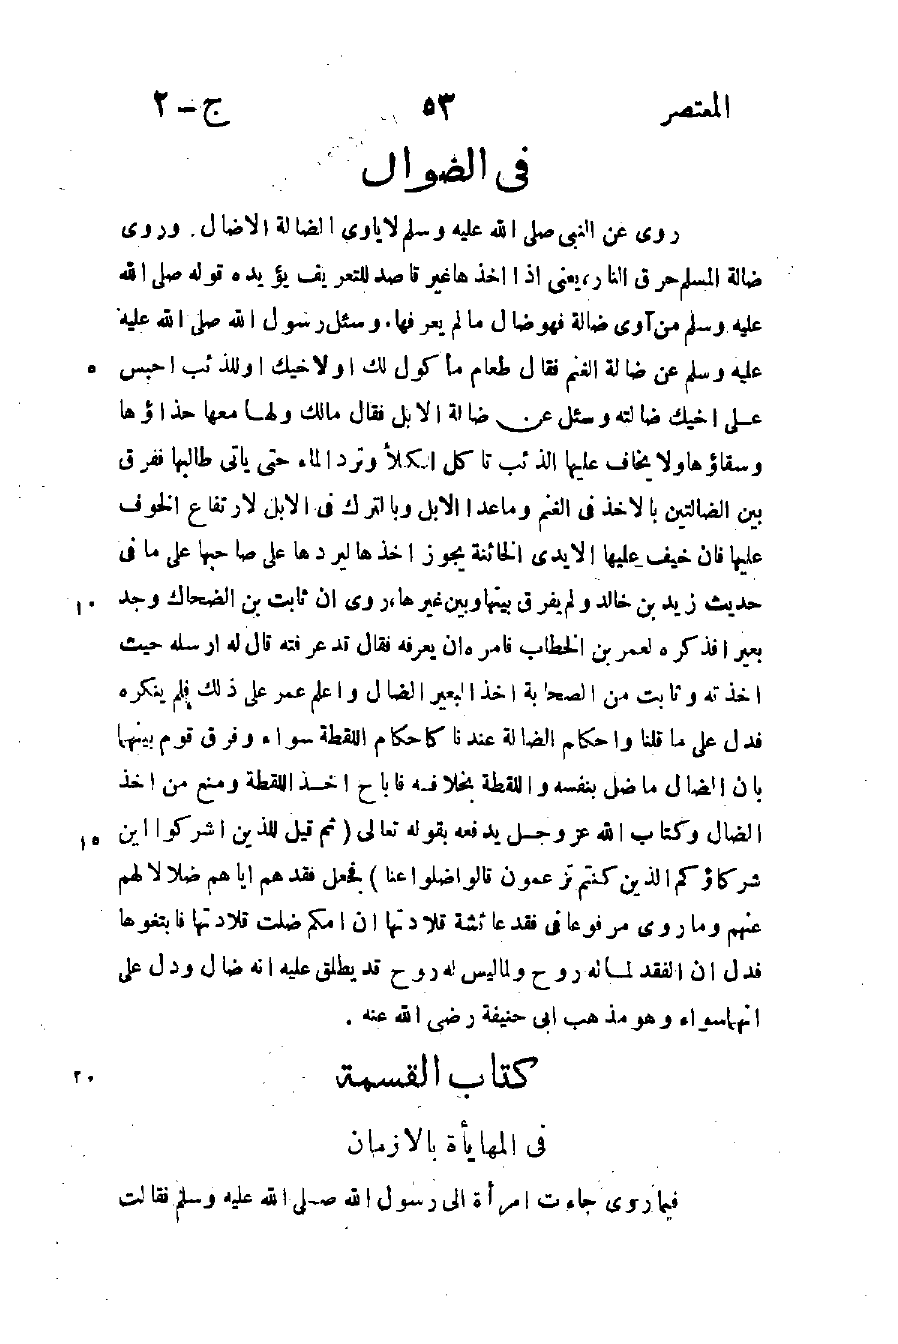 المعتصر ٥٣ ج – ٢
فى الضوال
روى عن النبى صلى الله عليه وسلم لا ياوى الضالة الا ضال . وروى
ضالة المسلم حرق النار، يعنى اذا اخذها غير قاصد للتعريف يؤيده قوله صلى الله
عليه وسلم من آوى ضالة فهو ضال ما لم يعرفها، وسئل رسول الله صلى الله عليه
عليه وسلم عن ضالة الغنم فقال طعام مأكول لك او لاخيك او للذئب احبس ٥
على اخيك ضالته وسئل عن ضالة الابل فقال مالك ولها معها حذاؤها
وسقاؤها ولا يخاف عليها الذئب تاكل الكلأ وترد الماء حتى ياتى طالبها ففرق
بين الضالتين بالاخذ فى الغنم وما عدا الابل وبالترك فى الابل لارتفاع الخوف
عليها فان خيف عليها الايدى الخائنة يجوز اخذها ليردها على صاحبها على ما فى
حديث زيد بن خالد ولم يفرق بينها وبين غيرها، روى ان ثابت بن الضحاك وجد ١٠
بعيرا فذكره لعمر بن الخطاب فامره ان يعرفه فقال قد عرفته قال له ارسله حيث
اخذته وثابت من الصحابة اخذ البعير الضال واعلم عمر على ذلك فلم ينكره
فدل على ما قلنا واحكام الضالة عندنا كاحكام اللقطة سواء وفرق قوم بينهما
بان الضال ما ضل بنفسه واللقطة بخلافه فاباح اخذ اللقطة ومنع من اخذ
الضال وكتاب الله عز وجل يدفعه بقوله تعالى ( ثم قيل للذين اشركوا اين ١٥
شركاؤكم الذين كنتم تزعمون قالوا ضلوا عنا ) فجعل فقدهم اياهم ضلالا لهم
عنهم وما روى مرفوعا فى فقد عائشة قلادتها ان امكم ضلت قلادتها فابتغوها
فدل ان الفقد لما له روح ولما ليس له روح قد يطلق عليه انه ضال ودل على
انهما سواء وهو مذهب ابى حنيفة رضى الله عنه .
كتاب القسمة ٢٠
فى المهايأة بالازمان
فيما روى جاءت امرأة الى رسول الله صلى الله عليه وسلم فقالت